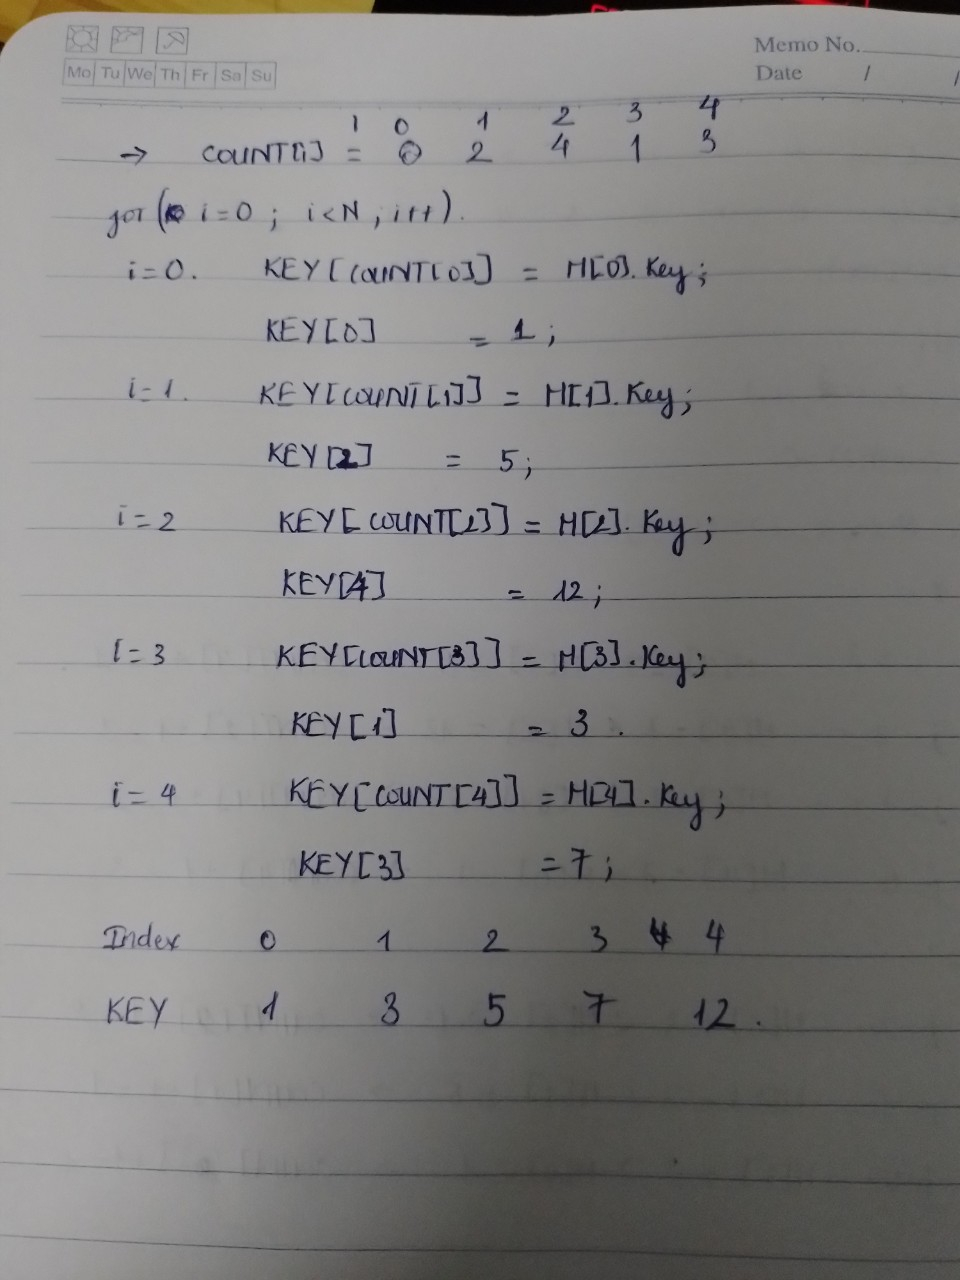 Memo No.
Mo Tu We Th Fr Sa Su
Date / /
i 0 1 2 3 4
→ COUNT[i] = 0 2 4 1 3
for ( i=0 ; i<N , i++).
i=0. KEY[COUNT[0]] = M[0].Key;
KEY[0] = 1;
i=1. KEY[COUNT[1]] = M[1].Key;
KEY[2] = 5;
i=2 KEY[COUNT[2]] = M[2].Key;
KEY[4] = 12;
i=3 KEY[COUNT[3]] = M[3].Key;
KEY[1] = 3.
i=4 KEY[COUNT[4]] = M[4].Key;
KEY[3] = 7;
Index 0 1 2 3 4
KEY 1 3 5 7 12.